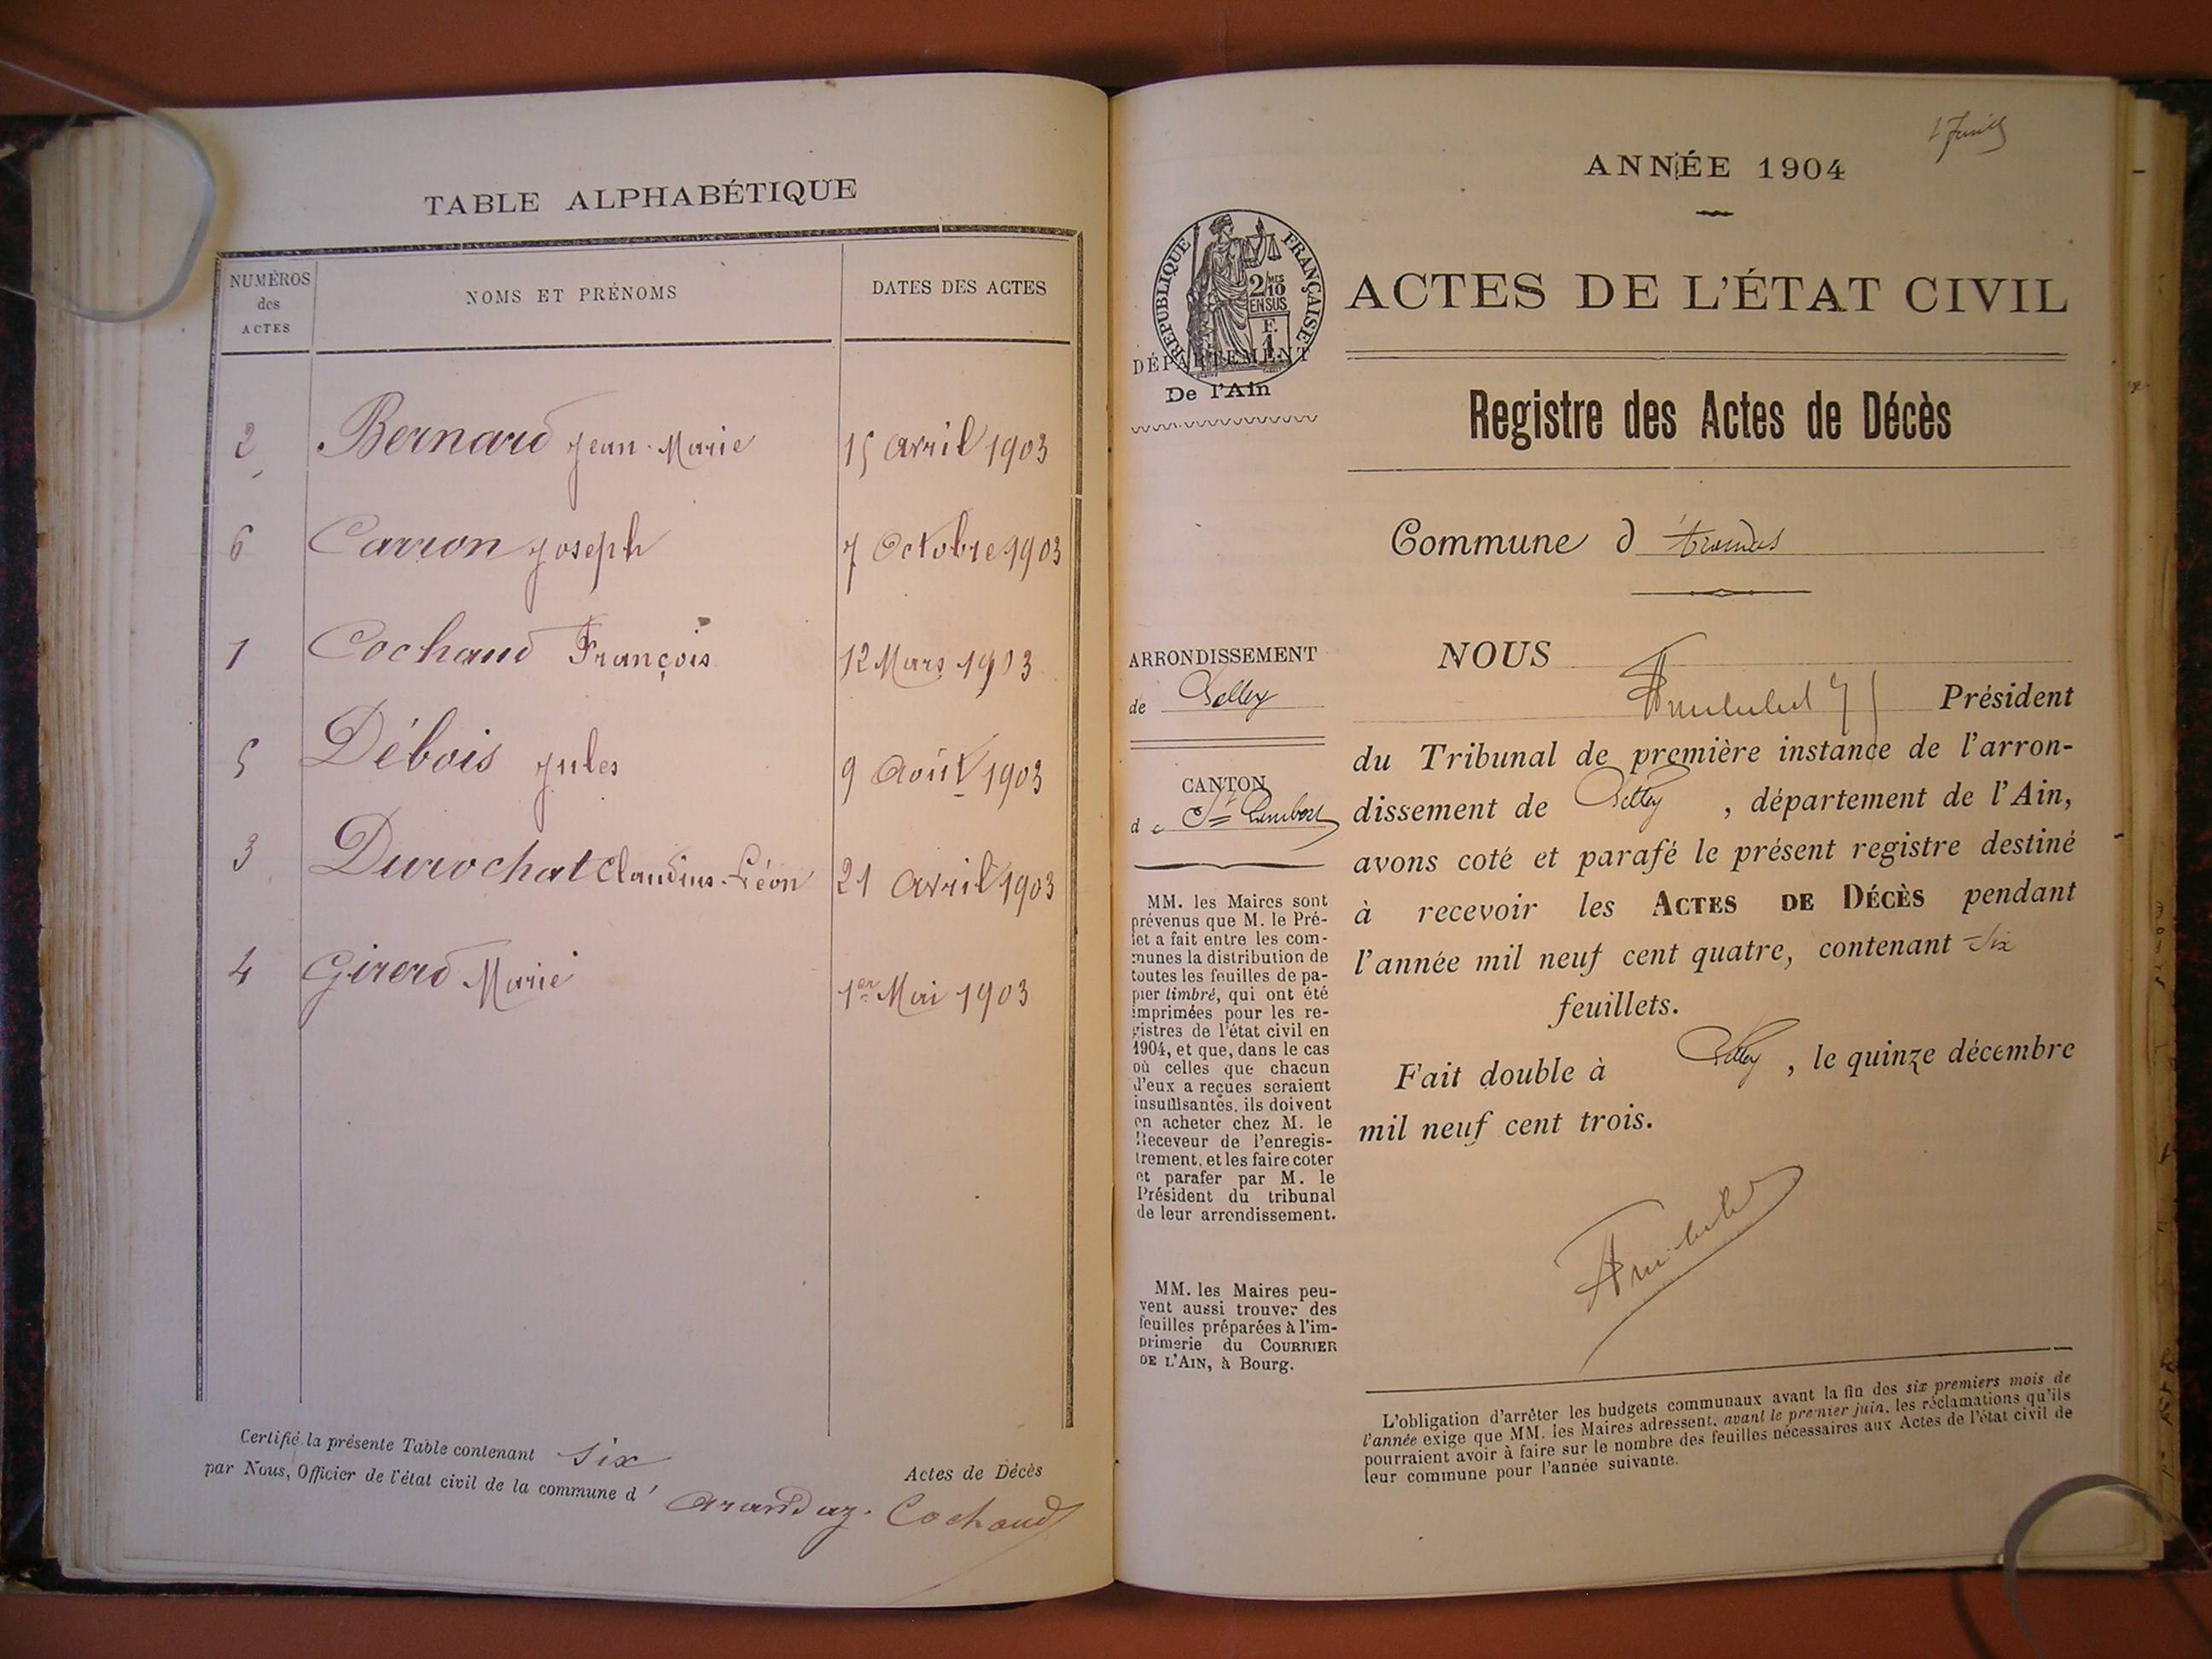 TABLE ALPHABÉTIQUE
NUMÉROS
des
ACTES
NOMS ET PRÉNOMS
DATES DES ACTES
2 Bernard Jean-Marie 15 Avril 1903
6 Carron Joseph 7 Octobre 1903
1 Cochaud François 12 Mars 1903
5 Débois Jules 9 Août 1903
3 Durochat Claudius-Léon 21 Avril 1903
4 Girerd Marie 1er Mai 1903
Certifié la présente Table contenant six Actes de Décès
par Nous, Officier de l'état civil de la commune d' Arandaz. Cochaud
ANNÉE 1904
RÉPUBLIQUE FRANÇAISE
2/10
MES
EN SUS
F.
1
DÉPARTEMENT
De l'Ain
ACTES DE L'ÉTAT CIVIL
Registre des Actes de Décès
Commune d
ARRONDISSEMENT
de Belley
CANTON
de St Rambert
MM. les Maires sont
prévenus que M. le Pré-
fet a fait entre les com-
munes la distribution de
toutes les feuilles de pa-
pier timbré, qui ont été
imprimées pour les re-
gistres de l'état civil en
1904, et que, dans le cas
où celles que chacun
d'eux a reçues seraient
insuffisantes, ils doivent
en acheter chez M. le
Receveur de l'enregis-
trement, et les faire coter
et parafer par M. le
Président du tribunal
de leur arrondissement.
MM. les Maires peu-
vent aussi trouver des
feuilles préparées à l'im-
primerie du COURRIER
DE L'AIN, à Bourg.
NOUS
Président
du Tribunal de première instance de l'arron-
dissement de Belley, département de l'Ain,
avons coté et parafé le présent registre destiné
à recevoir les ACTES DE DÉCÈS pendant
l'année mil neuf cent quatre, contenant six
feuillets.
Fait double à Belley, le quinze décembre
mil neuf cent trois.
L'obligation d'arrêter les budgets communaux avant la fin des six premiers mois de
l'année exige que MM. les Maires adressent, avant le premier juin, les réclamations qu'ils
pourraient avoir à faire sur le nombre des feuilles nécessaires aux Actes de l'état civil de
leur commune pour l'année suivante.